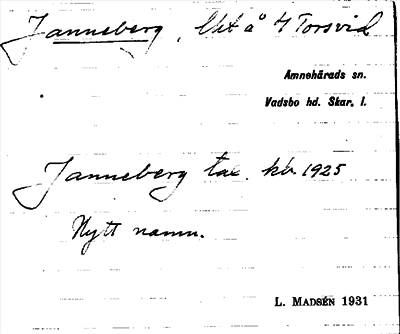 Janneberg, Uet å 4 Torsvid
Amnehärads sn.
Vadsbo hd. Skar. l.
Janneberg tax. kb. 1925
Nytt namn.
L. MADSÉN 1931